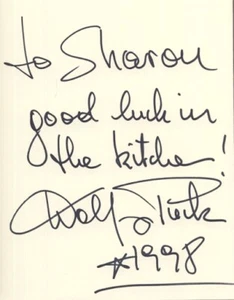 to Sharon
good luck in
the kitchen!
Wolfg Puck
*1998